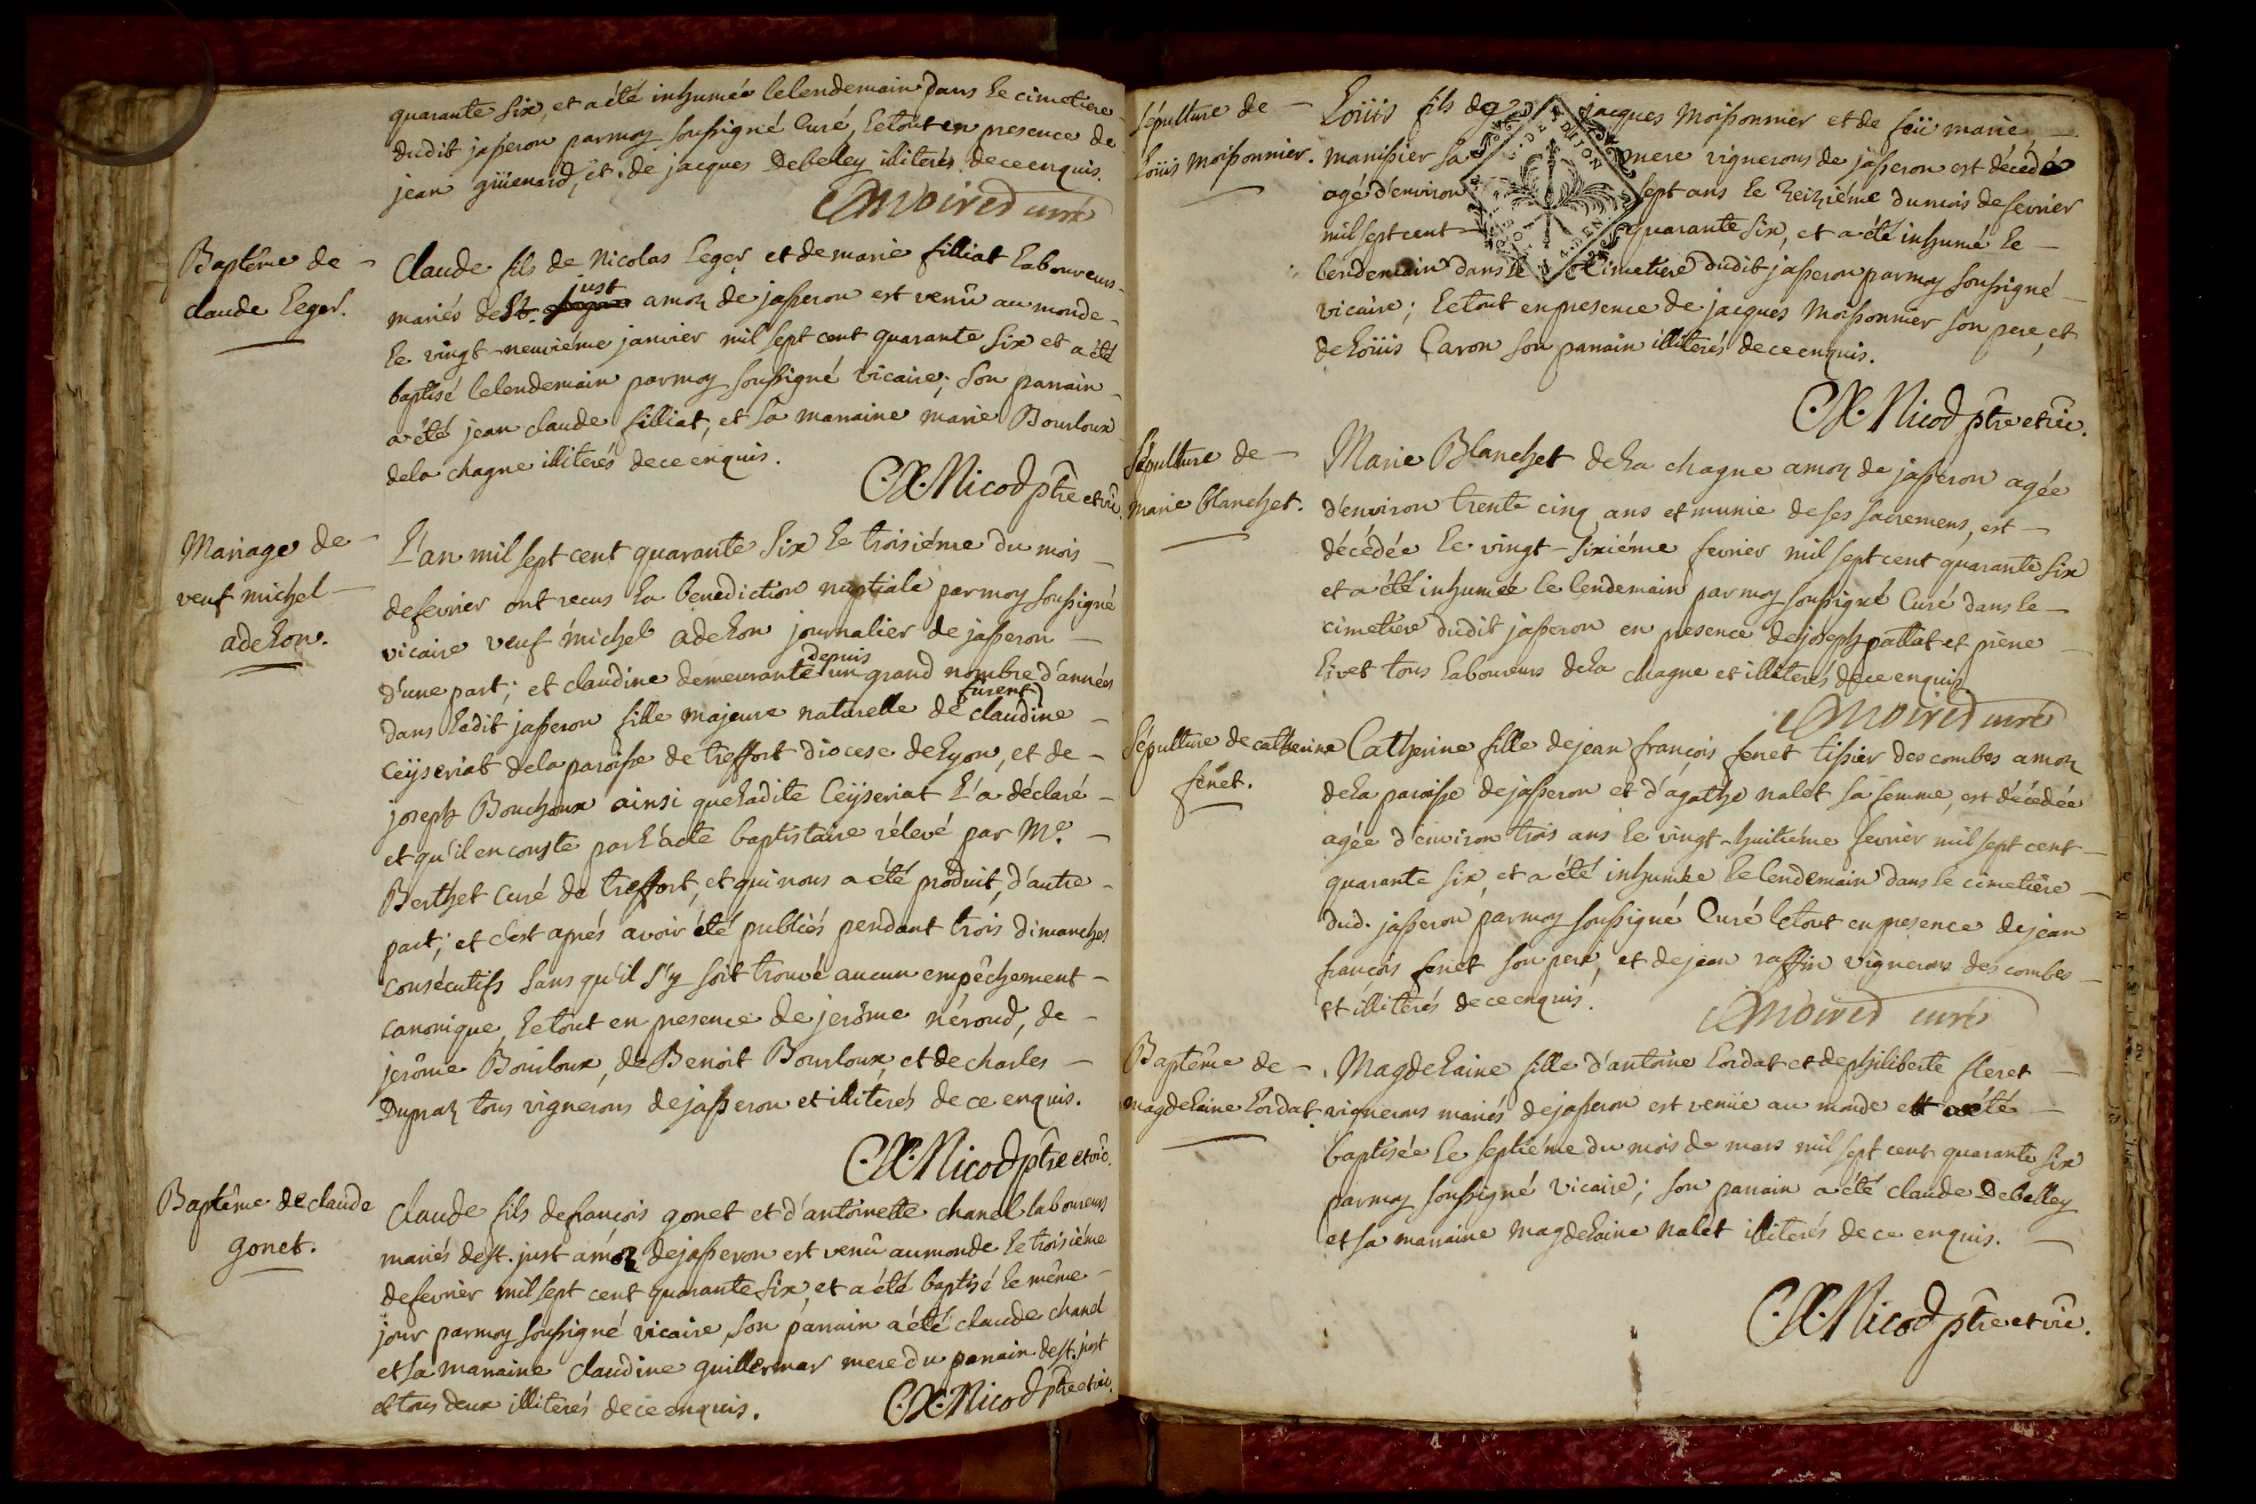 quarante six, et a été inhumée le lendemain dans le cimetiere
dudit jasseron par moy soussigné Curé, le tout en presence de
jean güenard, et de jacques Debelley illiterés de ce enquis.
Moired curé
Baptême de
claude Leger.
Claude fils de Nicolas Leger et de marie filliat laboureurs
mariés de St. just amon de jasseron est venû au monde
le vingt-neuviéme janvier mil sept cent quarante six et a été
baptisé le lendemain par moy soussigné vicaire; son parrain
a été jean claude filliat, et sa marraine marie Bourloux
de la chagne illiterés de ce enquis.
C.X. Nicod ptre et vic.
Mariage de
veuf michel
adelon.
L'an mil sept cent quarante six le troisiéme du mois
de fevrier ont reçus la benediction nuptiale par moy soussigné
vicaire veuf michel adelon journalier de jasseron
d'une part; et claudine demeurante depuis un grand nombre d'années
dans ledit jasseron fille majeure naturelle de furent claudine
Ceÿseriat de la paroisse de treffort diocese de Lyon, et de
joseph Bouchoux ainsi que ladite Ceÿseriat l'a déclaré
et qu'il en conste par l'acte baptistaire rélevé par Mr.
Berthet Curé de treffort, et qui nous a été produit, d'autre
part; et c'est aprés avoir été publiés pendant trois dimanches
consécutifs sans qu'il s'y soit trouvé aucun empêchement
canonique, le tout en presence de jerôme néroud, de
jerôme Bourloux, de Benoit Bourloux, et de charles
Dupraz tous vignerons de jasseron et illiterés de ce enquis.
C.X. Nicod ptre et vic.
Baptême de claude
gonet.
Claude fils de françois gonet et d'antoinette chanel laboureurs
mariés de st. just amon de jasseron est venû au monde le troisiéme
de fevrier mil sept cent quarante six, et a été baptisé le même
jour par moy soussigné vicaire, son parrain a été claude chanel
et sa marraine Claudine guillermar mere du parrain de st. just
et tous deux illiterés de ce enquis.
C.X. Nicod ptre et vic.
Sépulture de
Loüis Moissonnier.
Loüis fils de jacques Moissonnier et de feüe marie
manissier sa mere vignerons de jasseron est décédé
agé d'environ sept ans le treiziéme du mois de fevrier
mil sept cent quarante six, et a été inhumé le
lendemain dans le Cimetiere dudit jasseron par moy soussigné
vicaire; le tout en presence de jacques Moissonnier son pere, et
de Loüis Caron son parrain illiterés de ce enquis.
C.X. Nicod ptre et vic.
Sépulture de
marie blanchet.
Marie Blanchet de la chagne amon de jasseron agée
d'environ trente cinq ans et munie de ses sacremens, est
décédée le vingt-sixiéme fevrier mil sept cent quarante six
et a été inhumée le lendemain par moy soussigné Curé dans le
cimetiere dudit jasseron en presence de joseph pallat et pierre
livet tous laboureurs de la chagne et illiterés de ce enquis
Moired curé
Sépulture de catherine
fenet.
Catherine fille de jean françois fenet tissier des combes amon
de la paroisse de jasseron et d'agathe nalet sa femme, est décédée
agée d'environ trois ans le vingt-huitiéme fevrier mil sept cent
quarante six, et a été inhumée le lendemain dans le cimetiere
dud. jasseron par moy soussigné Curé le tout en presence de jean
françois fenet son pere, et de jean raffin vignerons des combes
et illiterés de ce enquis.
Moired curé
Baptême de
magdelaine Lordat.
Magdelaine fille d'antoine Lordat et de philiberte fleret
vignerons mariés de jasseron est venüe au monde et a été
baptisée le septiéme du mois de mars mil sept cent quarante six
par moy soussigné vicaire; son parrain a été claude Debelley
et sa marraine magdelaine nalet illiterés de ce enquis.
C.X. Nicod ptre et vic.